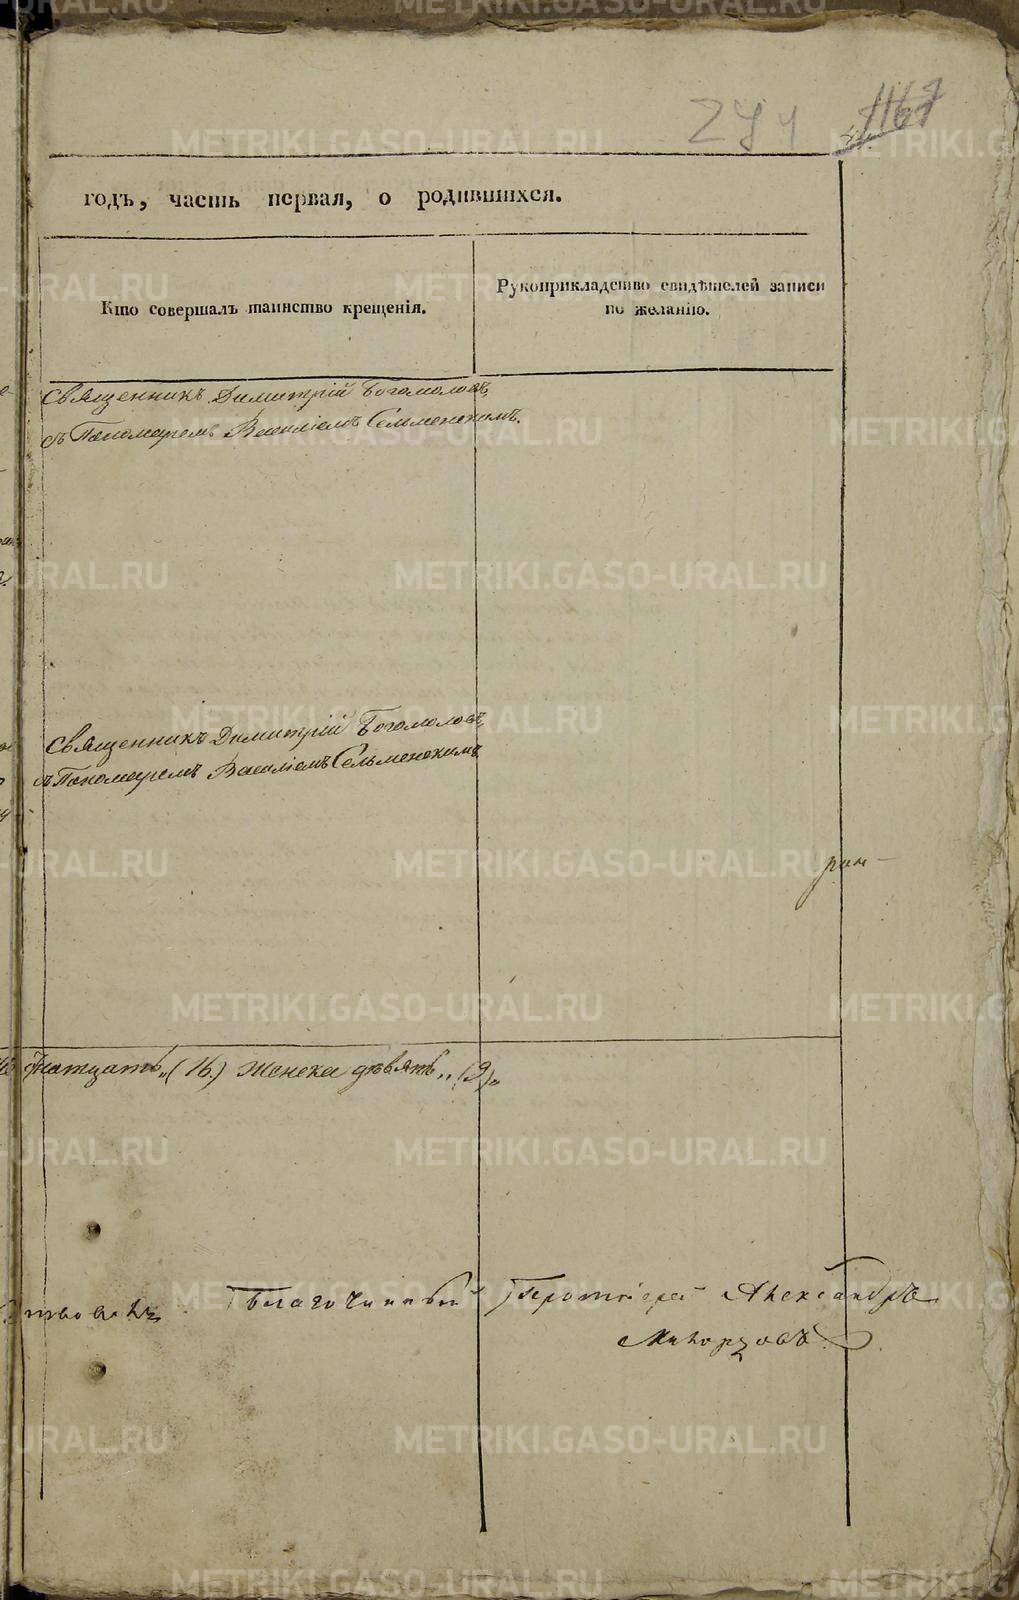 274 1167
годъ, часть первая, о родившихся.
Кто совершалъ таинство крещенія.
Рукоприкладство свидѣтелей записи
по желанію.
Священникъ Димитрій Богомоловъ,
съ Пономаремъ Василіемъ Сельменскимъ.
Священникъ Димитрій Богомоловъ,
съ Пономаремъ Василіемъ Сельменскимъ
рин-
натцать„(16.) Женска дѣвять„(9)„
Благочинный Протоіерей Александръ
METRIKI.GASO-URAL.RU